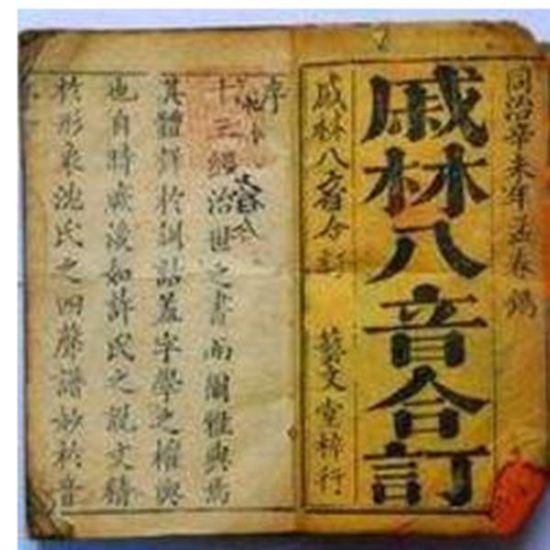 同治辛未年孟春 鐫
戚林八音合訂
戚林八音合訂 藝文堂梓行
序
十三經治世之書而爾雅與焉
其體詳於訓詁蓋字學之權輿
也自時厥後如許氏之說文精
於形 沈氏之四聲譜妙於音